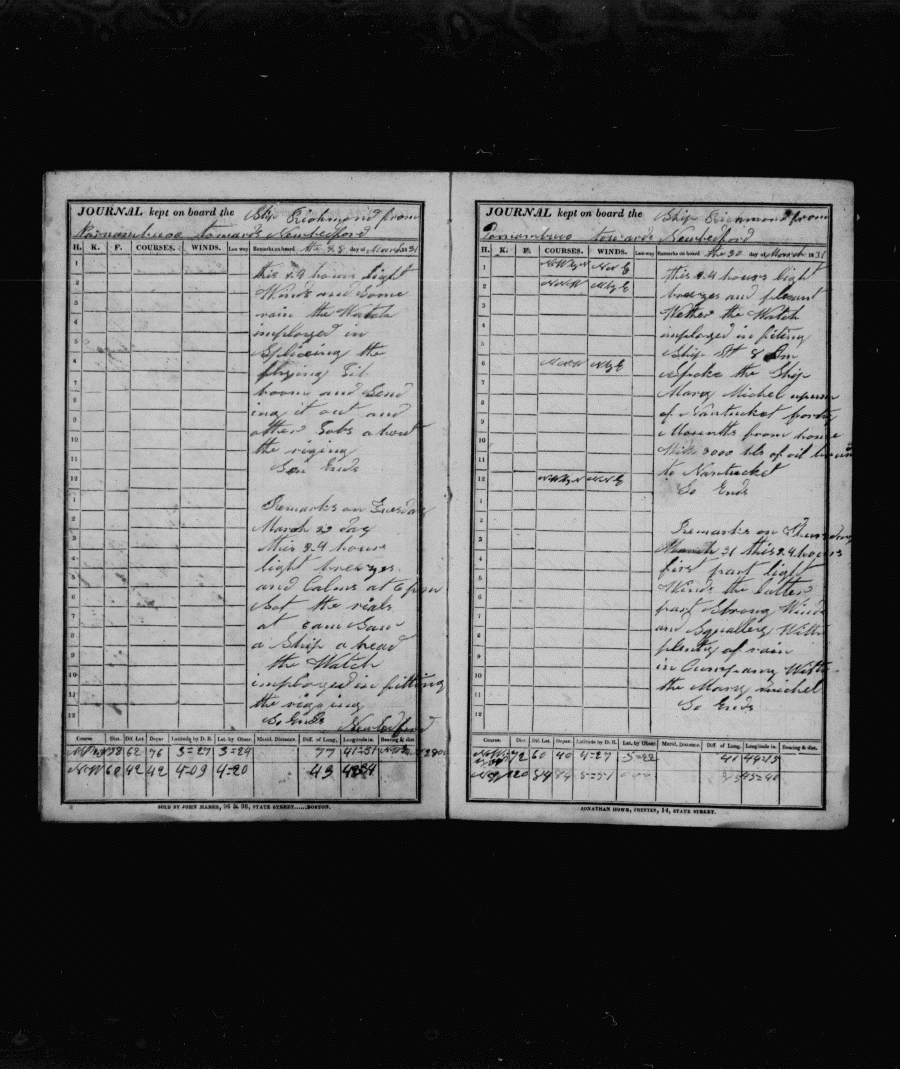 JOURNAL kept on board the Ship Richmond from
Parnambuco towards Newbedford
H. K. F. COURSES. WINDS. Lee way Remarks on board the 28 day of March 1831
this 24 hours light
Winds and Some
rain the Watch
imployed in
Spliceing the
flying Jib
boom and Send
ing it out and
other Jobs about
the riging
Soo Ends
Remarks on Tuesday
March 29 day
this 24 hours
light breezes
and Calms at 6 pm
Sot the rials
at 6 am Saw
a Ship a head
the Watch
imployed in fitting
the rigging
So Ends Newbedford
Course Dist. Dif. Lat. Depar Latitude by D. R. Lat. by Obser. Merid. Distance. Diff. of Long. Longitude in. Bearing & dist.
98 62 76 3=27 3=24 77 41=51
NW 60 42 42 4=09 4=20 43
SOLD BY JOHN MARSH, 96 & 98, STATE STREET......BOSTON.
JOURNAL kept on board the Ship Richmond from
Pernambuco towards Newbedford
H. K. F. COURSES. WINDS. Lee way Remarks on board the 30 day of March 1831
NWbyW NNE
NNW NbyE
this 24 hours light
breezes and plesant
Wether the Watch
imployed in fiting
Ship At 8 Am
NNW NbyE
Spoke the Ship
Mary Michel
of Nantucket forty
Mounths from home
With 2000 bls of oil bound
NWbyW NNE
to Nantucket
So Ends
Remarks on Thursday
March 31 this 24 hours
first part light
Winds the latter
part Strong Winds
an Squalley With
plenty of rain
in Cumpany With
the Mary michel
So Ends
Course. Dist. Dif. Lat. Depar. Latitude by D. R. Lat. by Obser. Merid. Distance. Diff. of Long. Longitude in. Bearing & dist.
72 60 40 4=27 5=22 41 44=15
120 84 84 5=51
JONATHAN HOWE, PRINTER, 14, STATE STREET.